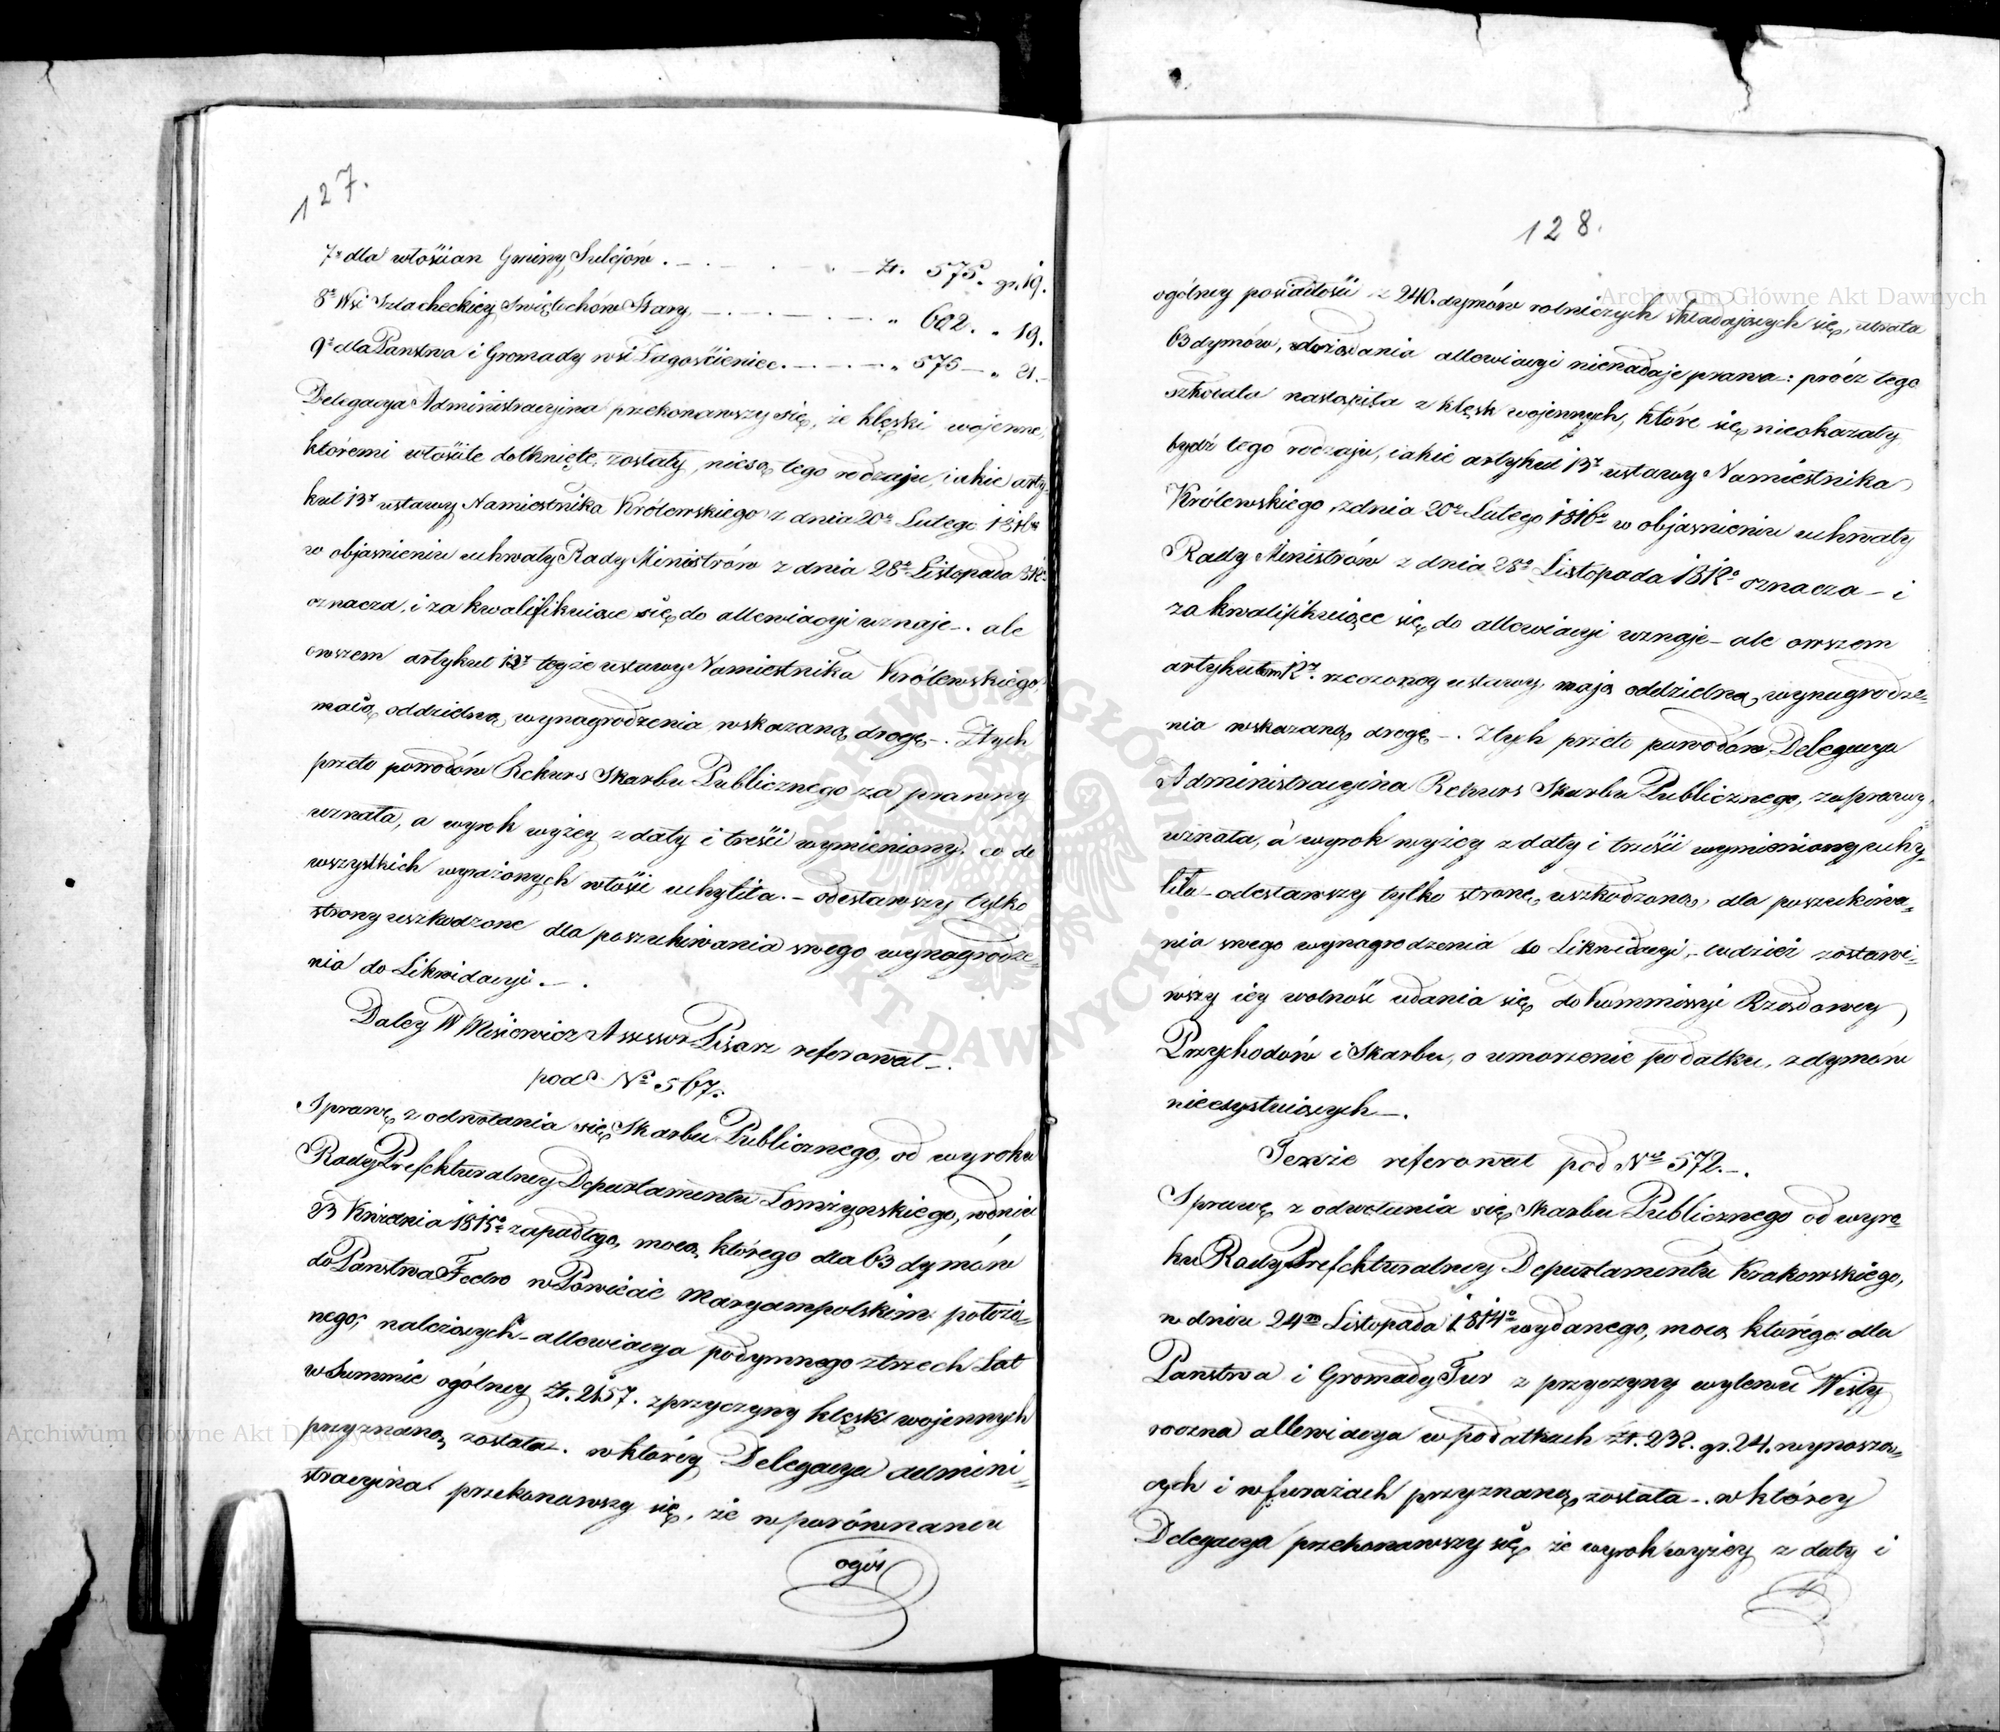 127.
7º dla włościan Gminy Sulejów . — . — . — zł. 575. gr. 19.
8º Wsi Szlacheckiey Święchów Stary, — . — . — . — „ 602. „ 19.
9º dla Państwa i Gromady wsi Jagościeniec. — . — . — „ 575 — „ 21. —
Delegacya Administracyina przekonawszy się, że klęski wojenne,
któremi włoście dotknięte, zostały, niesą tego rodzaju, iakie arty-
kuł 13ty ustawy Namiestnika Królewskiego z dnia 20º Lutego 1816º
w objaśnieniu uchwały Rady Ministrów z dnia 28º Listopada 1812º
oznacza, i za kwalifikuiące się do allewiacyi uznaje —. ale
owszem artykuł 12ty teyże ustawy Namiestnika Królewskiego,
maią oddzielną wynagrodzenia wskazaną drogę —. Z tych
przeto powodów Rekurs Skarbu Publicznego za prawny
uznała, a wyrok wyżey z daty i treści wymieniony, co do
wszystkich wyrażonych włości uchyliła. — odesławszy tylko
strony uszkodzone dla poszukiwania swego wynagrodze-
nia do Likwidacyi. — .
Daley W Misiewicz Assessor Pisarz referował —.
pod Nº 567.
Sprawę z odwołania się Skarbu Publicznego, od wyroku
Rady Prefekturalney Departamentu Łomżyńskiego, w dniu
23 Kwietnia 1815º zapadłego, mocą którego dla 63 dymów
do Państwa Fedro w Powiecie Maryampolskim położo-
nego, należących — allewiacya podymnego z trzech Lat
w Summie ogólney zł. 2157. z przyczyny klęsk wojennych
przyznaną została —. w którey Delegacya admini-
stracyina przekonawszy się, że w porównaniu
ogól
128.
ogólney posiadłości z 240. dymów rolniczych składających się, utrata
63 dymów, do żądania allewiacyi nienadaje prawa —: prócz tego
szkoda ta nastąpiła z klęsk wojennych, które się nieokazały
bydź tego rodzaju, iakie artykuł 13ty ustawy Namiestnika
Królewskiego z dnia 20º Lutego 1816º w objaśnieniu uchwały
Rady Ministrów z dnia 28º Listopada 1812º oznacza — i
za kwalifikuiące się do allewiacyi uznaje — ale owszem
artykułem 12ty rzeczoney ustawy, mają oddzielną wynagrodze-
nia wskazaną drogę —. Z tych przeto powodów Delegacya
Administracyina Rekurs Skarbu Publicznego, za prawny,
uznała, a wyrok wyżey z daty i treści wymieniony uchy-
liła — odesławszy tylko stronę uszkodzoną, dla poszukiwa-
nia swego wynagrodzenia do Likwidacyi, — tudzież zostawi-
wszy iey wolność udania się do Kommissyi Rządowey
Przychodów i Skarbu, o umorzenie podatku, z dymów
nieexystuiących —.
Tenże referował pod Nº 572. —.
Sprawę z odwołania się Skarbu Publicznego od wyro-
ku Rady Prefekturalney Departamentu Krakowskiego,
w dniu 24m Listopada 1814º wydanego, mocą którego dla
Państwa i Gromady Tur z przyczyny wylewu Wisły
roczna allewiacya w podatkach zł. 232. gr. 24. wynoszą-
cych i w furażach przyznaną została —. w którey
Delegacya przekonawszy się, że wyrok wyżey z daty i
Archiwum Główne Akt Dawnych
Archiwum Główne Akt Dawnych
ARCHIWUM GŁÓWNE AKT DAWNYCH